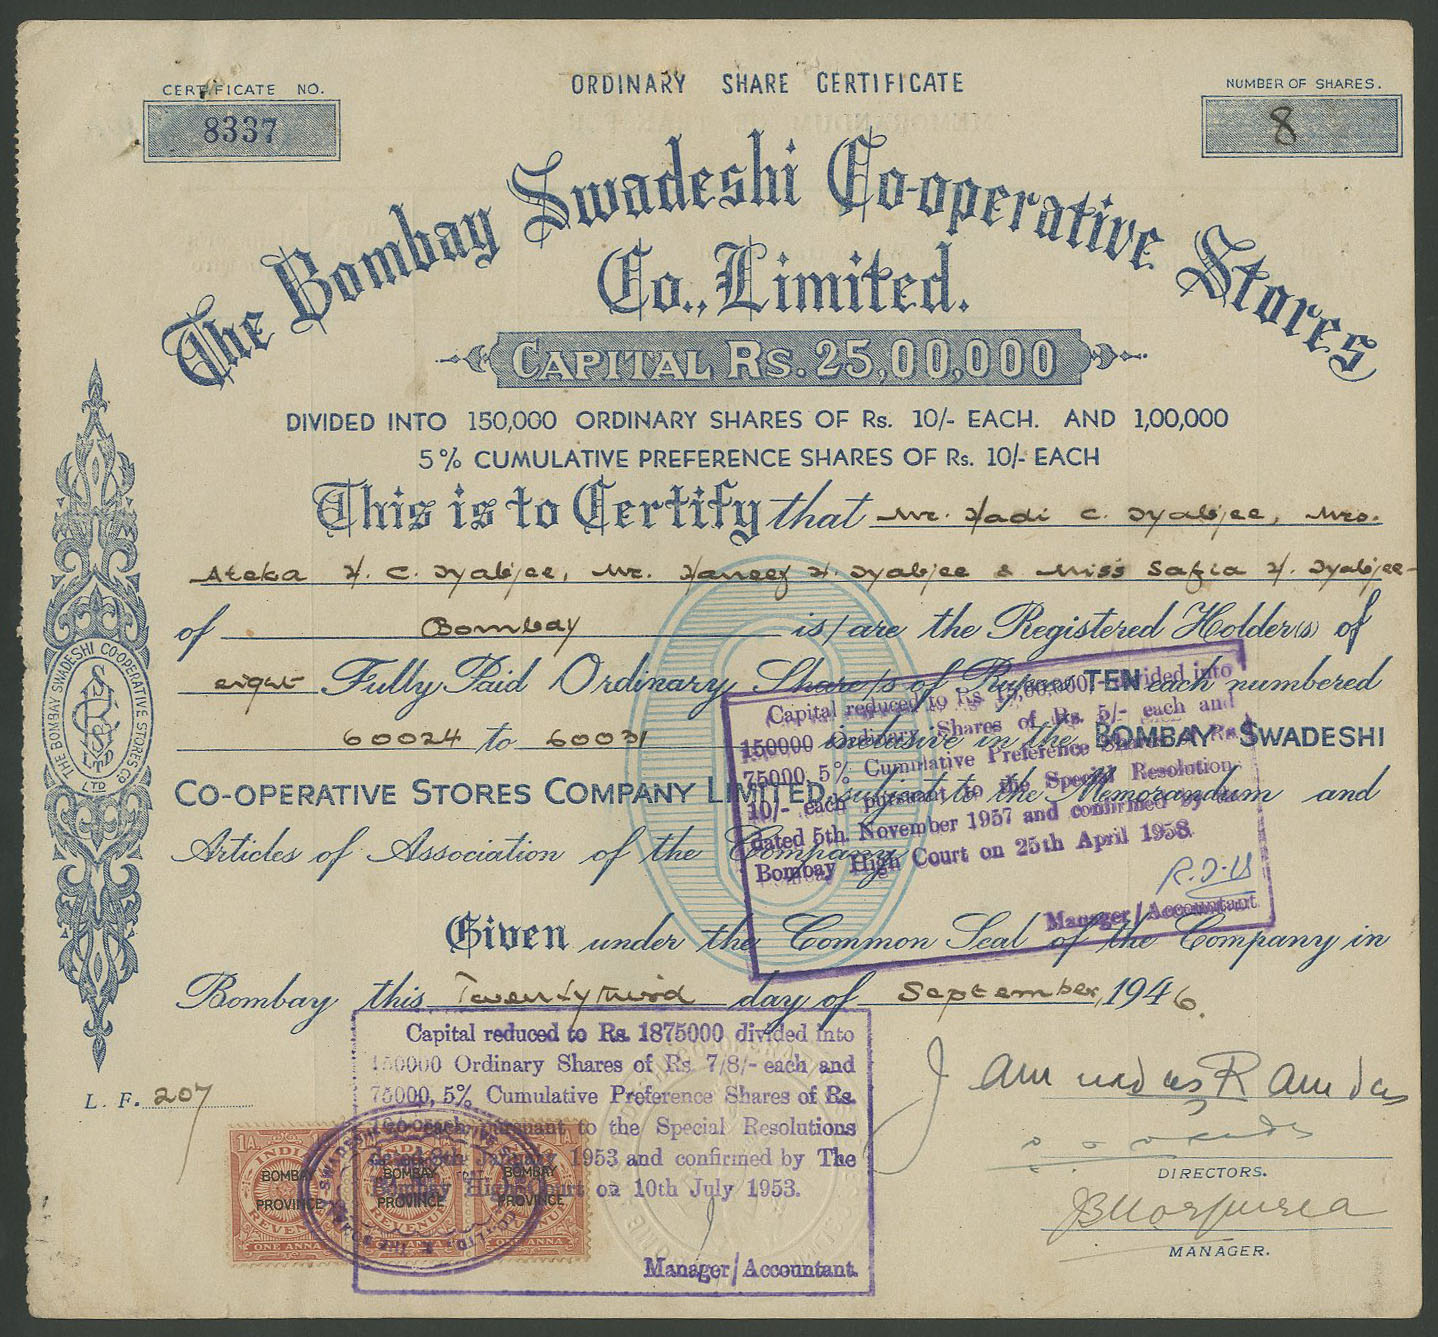 CERTIFICATE NO.
8337
ORDINARY SHARE CERTIFICATE
NUMBER OF SHARES.
8
The Bombay Swadeshi Co-operative Stores
Co., Limited.
CAPITAL RS. 25,00,000
DIVIDED INTO 150,000 ORDINARY SHARES OF Rs. 10/- EACH. AND 1,00,000
5% CUMULATIVE PREFERENCE SHARES OF Rs. 10/- EACH
This is to Certify that Mr. Hadi C. Tyabjee, Mrs.
Ateka H. C. Tyabjee, Mr. Haneef H. Tyabjee & Miss Safia H. Tyabjee-
of Bombay is/are the Registered Holder(s) of
eight Fully Paid Ordinary Share/s of Rupees TEN each numbered
60024 to 60031 inclusive in the BOMBAY SWADESHI
CO-OPERATIVE STORES COMPANY LIMITED, subject to the Memorandum and
Articles of Association of the Company.
Capital reduced to Rs. 15,00,000/- divided into
150000 Ordinary Shares of Rs. 5/- each and
75000, 5% Cumulative Preference Shares of Rs.
10/- each pursuant to the Special Resolution
dated 5th. November 1957 and confirmed by
Bombay High Court on 25th April 1958.
Manager/Accountant
Given under the Common Seal of the Company in
Bombay this Twentythird day of September, 1946.
THE BOMBAY SWADESHI CO-OPERATIVE STORES CO LTD
L. F. 207
Capital reduced to Rs. 1875000 divided into
150000 Ordinary Shares of Rs 7/8/- each and
75000, 5% Cumulative Preference Shares of Rs.
each pursuant to the Special Resolutions
dated 8th January 1953 and confirmed by The
Bombay High Court on 10th July 1953.
Manager/Accountant.
1A INDIA 1A
BOMBAY BOMBAY BOMBAY
PROVINCE PROVINCE PROVINCE
REVENUE REVENUE REVENUE
ONE ANNA ONE ANNA ONE ANNA
Jamnadas Ramdas
DIRECTORS.
MANAGER.